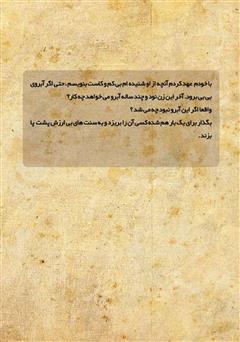 با خودم عهد کردم آنچه از او شنیده ام بی کم و کاست بنویسم، حتی اگر آبروی
بی بی برود. آخر این زن نود و چند ساله آبرو می خواهد چه کار؟
واقعا اگر این آبرو نبود چه می شد؟
بگذار برای یک بار هم شده کسی آن را بریزد و به سنت های بی ارزش پشت پا
بزند.